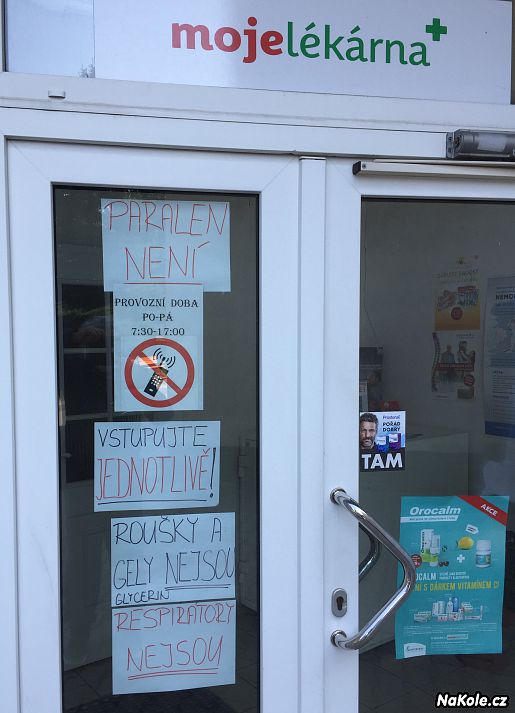 mojelékárna
PARALEN
NENÍ
PROVOZNÍ DOBA
PO-PÁ
7:30-17:00
VSTUPUJTE
JEDNOTLIVĚ!
ROUŠKY A
GELY NEJSOU
GLYCERIN
RESPIRÁTORY
NEJSOU
Prostenal
POŘAD
DOBRÝ
TAM
AKCE
Orocalm
OCALM
NI S DÁRKEM VITAMÍNEM C!
NaKole.cz